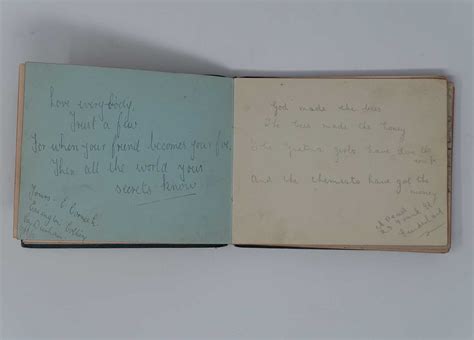 Love everybody,
Trust a few
For when your friend becomes your foe,
Then all the world your
secrets know
Yours
God made the bees
The bees made the honey
The Gretna girls have done the
work
And the chemists have got the
money
Sunderland